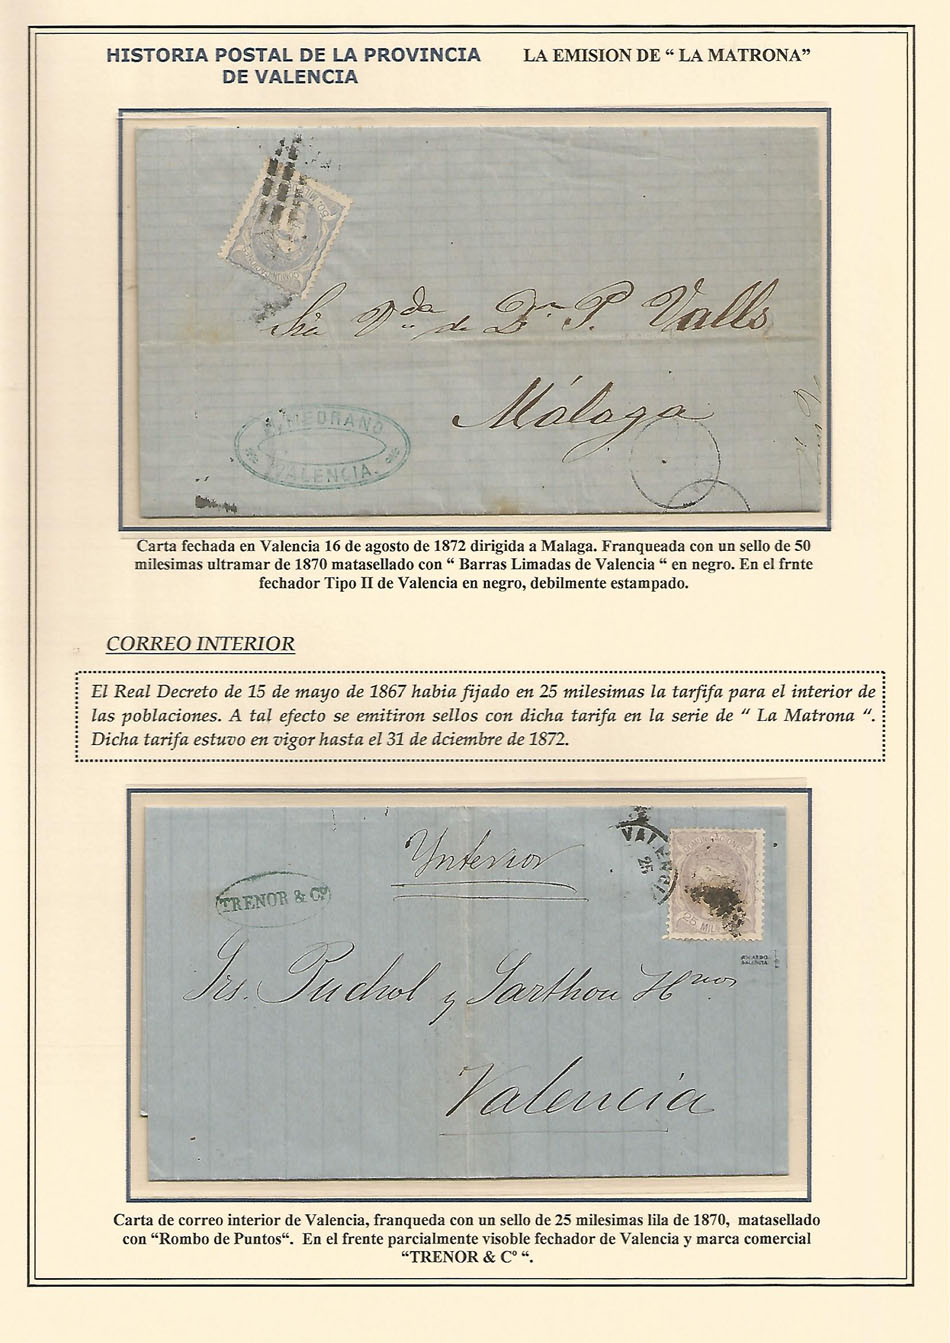 HISTORIA POSTAL DE LA PROVINCIA
DE VALENCIA
LA EMISION DE “ LA MATRONA”
50 MIL
Sra Vda de Dn P. Valls
Málaga
MEDRANO
VALENCIA.
Carta fechada en Valencia 16 de agosto de 1872 dirigida a Malaga. Franqueada con un sello de 50
milesimas ultramar de 1870 matasellado con “ Barras Limadas de Valencia “ en negro. En el frnte
fechador Tipo II de Valencia en negro, debilmente estampado.
CORREO INTERIOR
El Real Decreto de 15 de mayo de 1867 habia fijado en 25 milesimas la tarfifa para el interior de
las poblaciones. A tal efecto se emitiron sellos con dicha tarifa en la serie de “ La Matrona “.
Dicha tarifa estuvo en vigor hasta el 31 de dciembre de 1872.
Ynterior
VALENCIA
25
TRENOR & Cº
25 MIL
Srs. Puchol y Sarthou Hnos
Valencia
Carta de correo interior de Valencia, franqueda con un sello de 25 milesimas lila de 1870, matasellado
con “Rombo de Puntos“. En el frente parcialmente visoble fechador de Valencia y marca comercial
“TRENOR & Cº “.